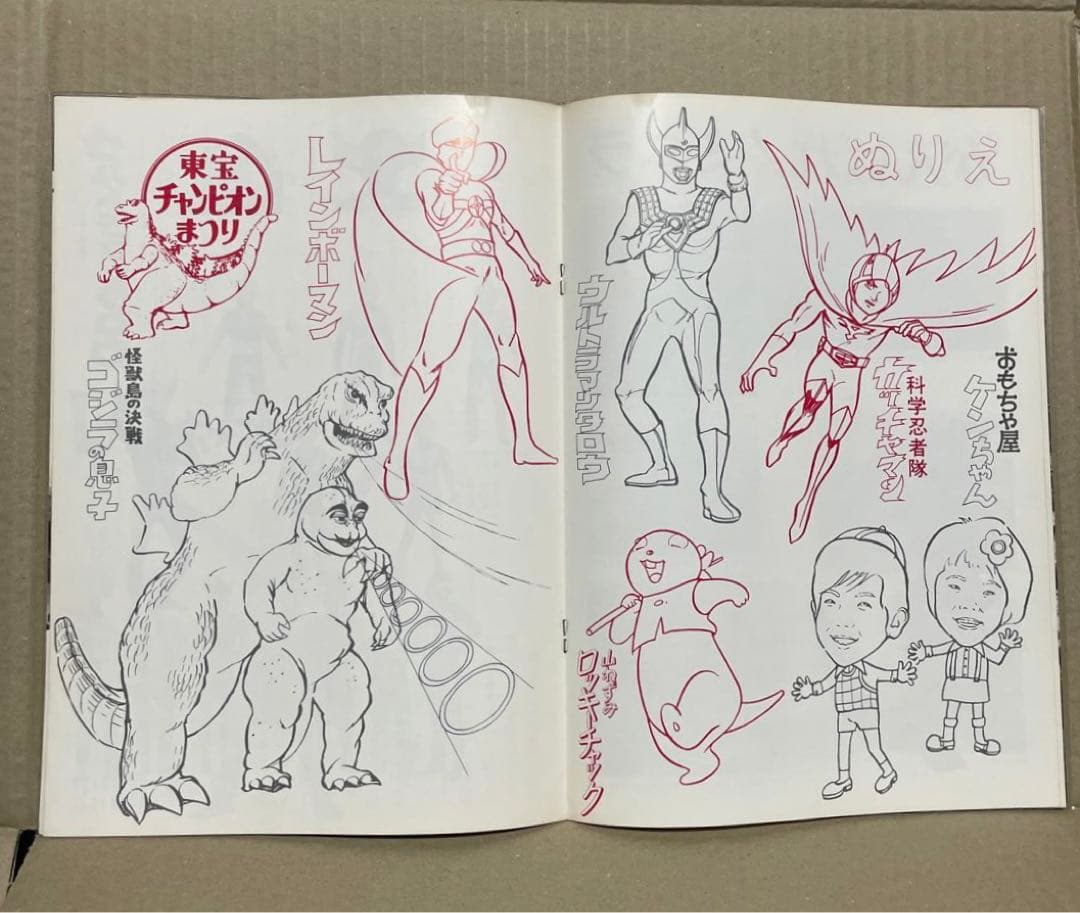 ぬりえ
おもちゃ屋
ケンちゃん
科学忍者隊
ガッチャマン
ウルトラマンタロウ
山ねずみ
ロッキーチャック
レインボーマン
東宝
チャンピオン
まつり
怪獣島の決戦
ゴジラの息子